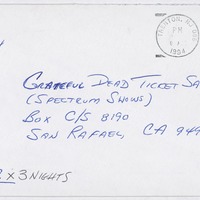 TRENTON, NJ
PM
1984
GRATEFUL DEAD TICKET SA
(SPECTRUM SHOWS)
BOX C/S 8190
SAN RAFAEL, CA 949
2 x 3 NIGHTS